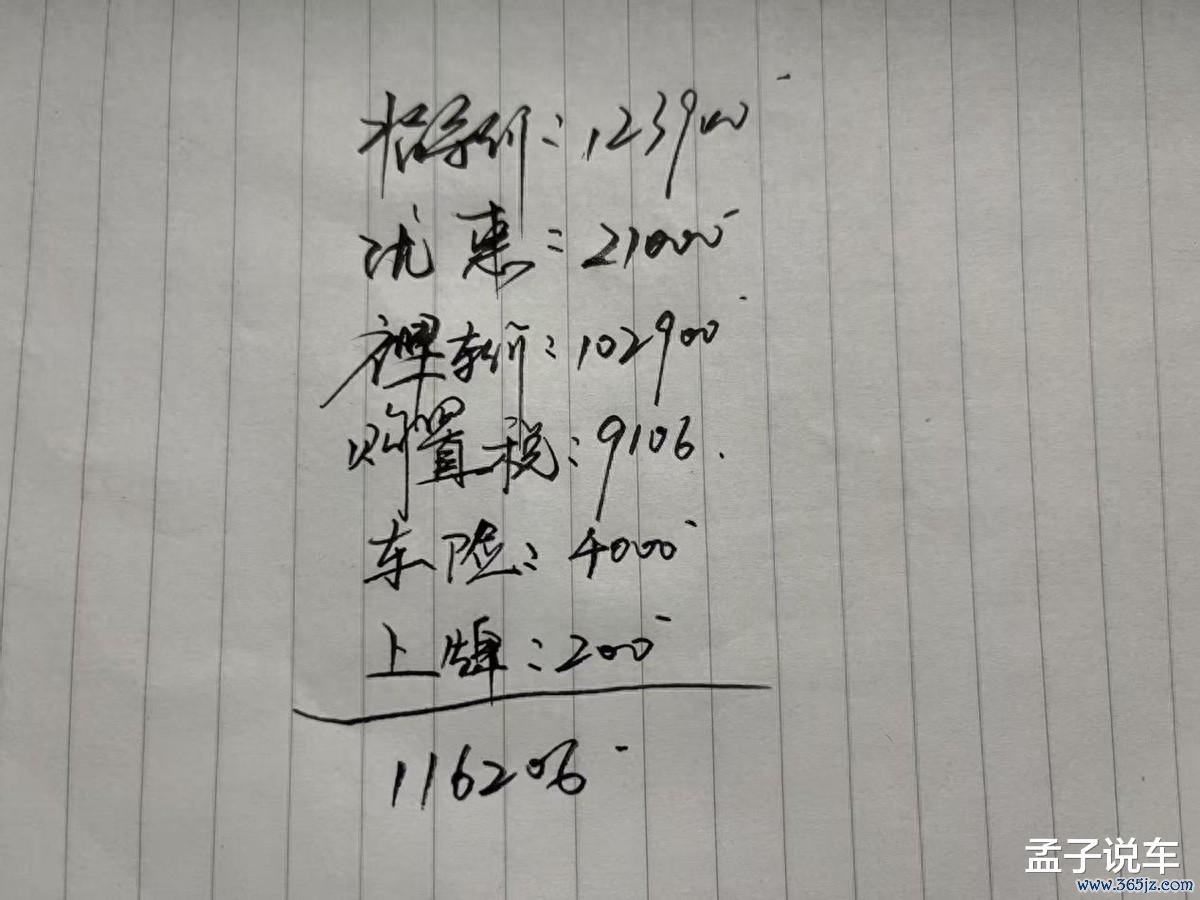 指导价:123900
优惠:21000
裸车价:102900
购置税:9106.
车险:4000
上牌:200
116206
孟子说车
www.365jz.com